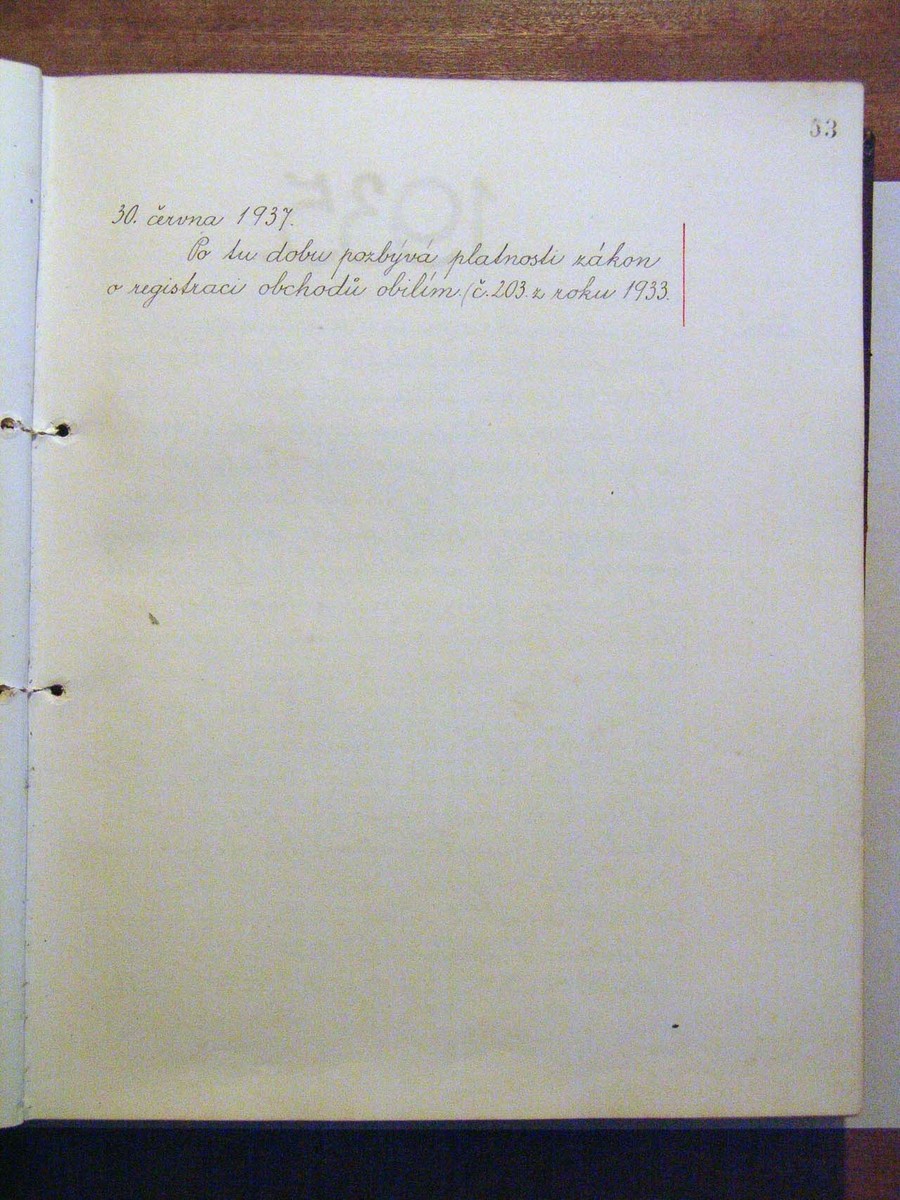 53
30. června 1937.
Po tu dobu pozbývá platnosti zákon
o registraci obchodů obilím (č. 203 z roku 1933.